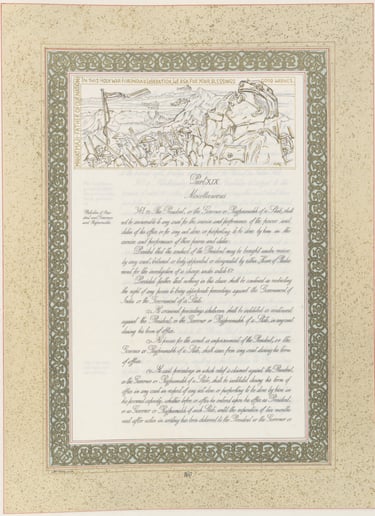 MAHATMAJI, FATHER OF OUR NATION
IN THIS HOLY WAR FOR INDIA'S LIBERATION WE ASK FOR YOUR BLESSINGS GOOD WISHES
Part XIX
Miscellaneous
Protection of Pres-
ident and Governors
and Rajpramukhs.
361. (1) The President, or the Governor or Rajpramukh of a State, shall
not be answerable to any court for the exercise and performance of the powers and
duties of his office or for any act done or purporting to be done by him in the
exercise and performance of those powers and duties:
Provided that the conduct of the President may be brought under review
by any court, tribunal or body appointed or designated by either House of Parlia-
ment for the investigation of a charge under article 61:
Provided further that nothing in this clause shall be construed as restricting
the right of any person to bring appropriate proceedings against the Government of
India or the Government of a State.
(2) No criminal proceedings whatsoever shall be instituted or continued
against the President, or the Governor or Rajpramukh of a State, in any court
during his term of office.
(3) No process for the arrest or imprisonment of the President, or the
Governor or Rajpramukh of a State, shall issue from any court during his term
of office.
(4) No civil proceedings in which relief is claimed against the President,
or the Governor or Rajpramukh of a State, shall be instituted during his term of
office in any court in respect of any act done or purporting to be done by him in
his personal capacity, whether before or after he entered upon his office as President,
or as Governor or Rajpramukh of such State, until the expiration of two months
next after notice in writing has been delivered to the President or the Governor or
160